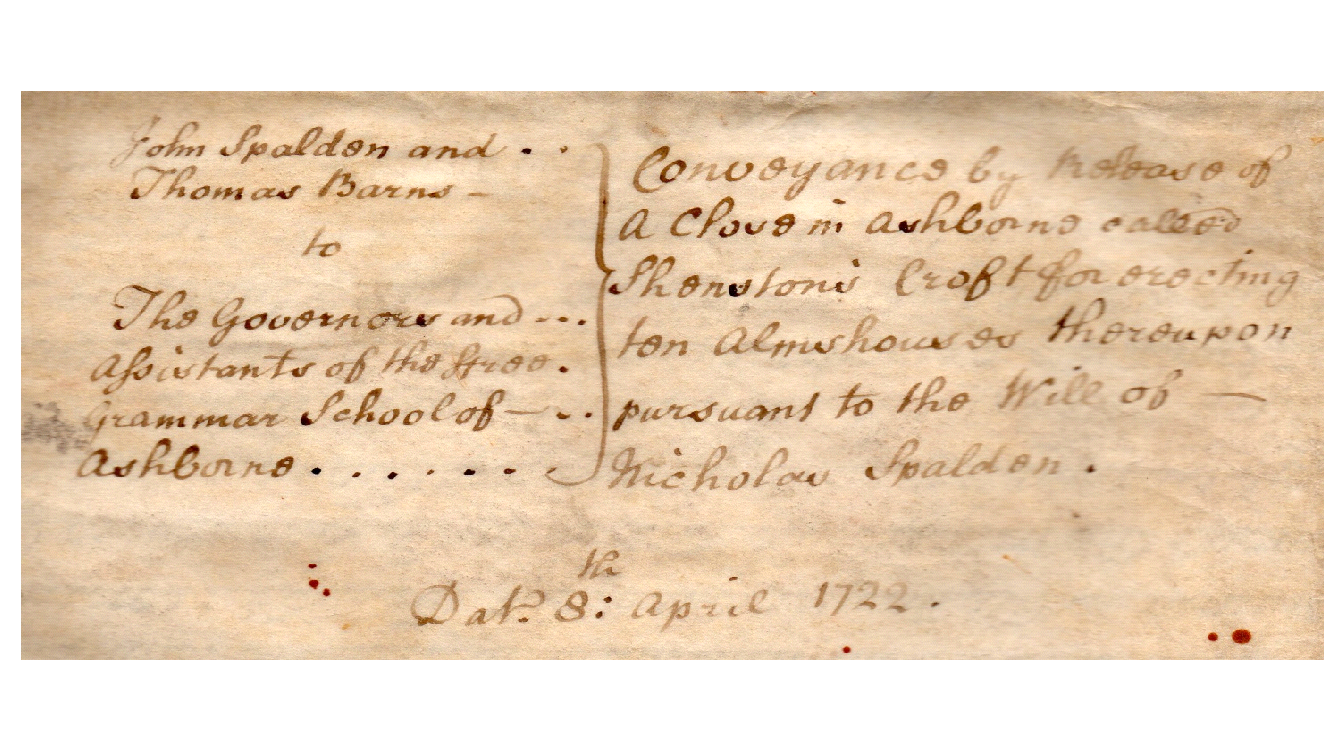 John Spalden and . .
Thomas Barns -
to
The Governors and - . .
Assistants of the ffree .
Grammar School of - . .
Ashborne . . . . . . .
Conveyance by Release of
A Close in Ashborne called
Shenstons Croft for erecting
ten Almshouses thereupon
pursuant to the Will of -
Nicholas Spalden .
Dat. 8th: April 1722 .